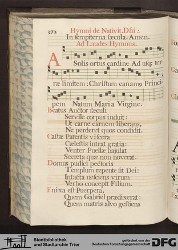 372 Hymni de Nativit. Dñi.
In sempiterna sæcula. Amen.
Ad Laudes Hymnus.
A Solis ortus cardine Ad usq; ter
ræ limitem, Christum canamus Princi
pem Natum Maria Virgine.
Beatus Auctor sæculi
Servile corpus induit:
Ut carne carnem liberans,
Ne perderet quos condidit.
Castæ Parentis viscera
Cælestis intrat gratia:
Venter Puellæ bajulat
Secreta quæ non noverat.
Domus pudici pectoris
Templum repente fit Dei:
Intacta nesciens virum
Verbo concepit Filium.
Enixa est Puerpera,
Quem Gabriel prædixerat:
Quem matris alvo gestiens
Stadtbibliothek
und Stadtarchiv Trier
gefördert von der
Deutschen Forschungsgemeinschaft
DFG